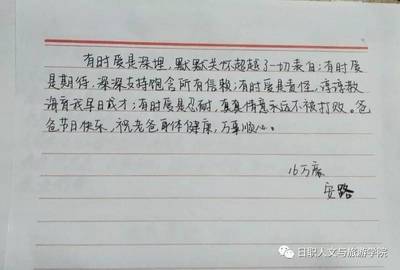 有时爱是深埋，默默关怀超越了一切表白；有时爱
是期待，深深支持饱含所有信赖；有时爱是责怪，谆谆教
诲育我早日成才；有时爱是忍耐，真真情意永远不被打败。爸
爸节日快乐，祝老爸身体健康，万事顺心。
16万豪
安路
日职人文与旅游学院